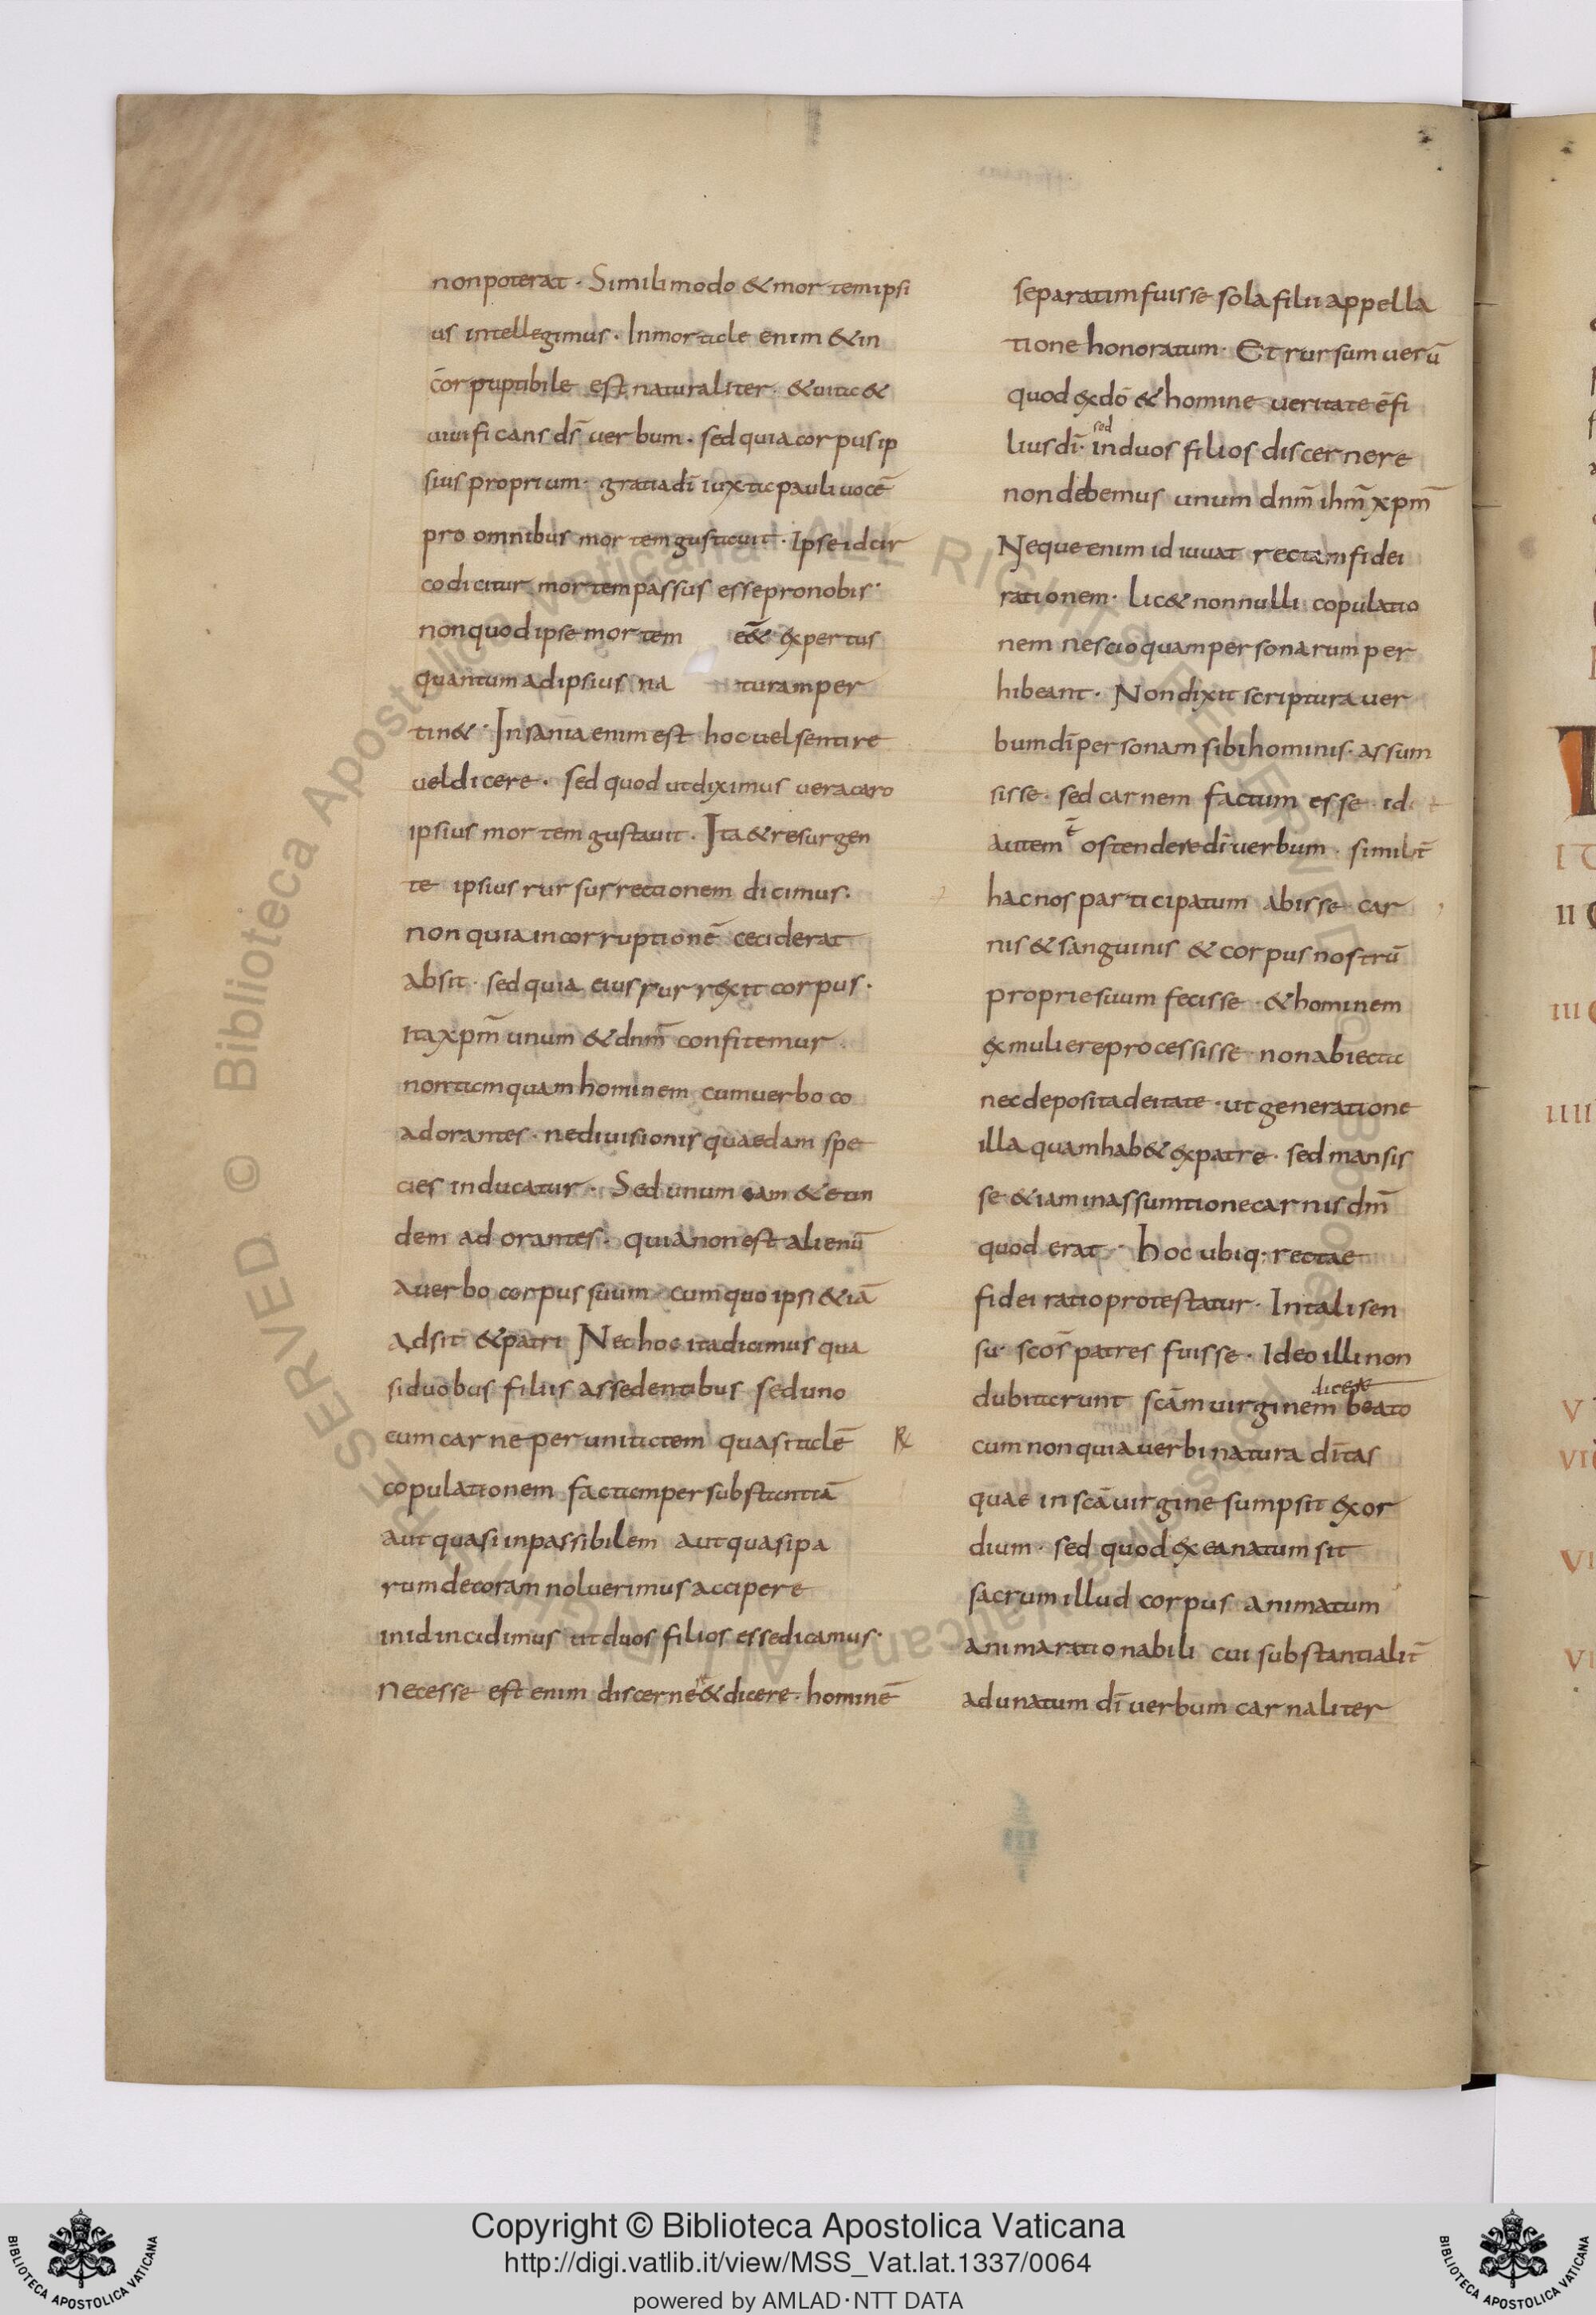 non poterat · Simili modo & mortem ipsi
us intellegimus · Inmortale enim & in
corpuptibile est naturaliter · & uita &
uiuificans d̄s uerbum · sed quia corpus ip
sius proprium · gratia dī iuxta pauli uocē
pro omnibus mortem gustauit · Ipse idcir
co dicitur mortem passus esse pro nobis ·
non quod ipse mortem ēē& expertus
quantum ad ipsius na turam per
tin& · Insania enim est hoc uel sentire
uel dicere · sed quod ut diximus uera caro
ipsius mortem gustauit · Ita & resurgen
te ipsius rursus rectionem dicimus ·
non quia in corruptionē ceciderat
absit · sed quia eius rurrexit corpus ·
Ita xpm̄ unum & dnm̄ confitemur
non tamquam hominem cum uerbo co
adorantes · ne diuisionis quaedam spe
cies inducatur · Sed unum eam & eun
dem adorantes · quia non est alienū
a uerbo corpus suum · cum quo ipsi &iā
adsit & patri Nec hoc ita dicimus qua
si duobus filiis assedentibus sed uno
cum carnē per unitatem quasi talē
copulationem factam per substantiā
aut quasi inpassibilem aut quasi pa
rum decoram noluerimus accipere
in id incidimus ut duos filios esse dicamus ·
Necesse est enim discerne & dicere · hominē
separatim fuisse sola filii appella
tione honoratum · Et rursum uerū
quod ex dō & homine ueritate ē fi
lius dī · in duos filios discernere
sed
non debemus unum dnm̄ ihm̄ xpm̄
Neque enim id iuuat rectam fidei
rationem · Lic& nonnulli copulatio
nem nescio quam personarum per
hibeant · Non dixit scriptura uer
bum dī personam sibi hominis · assum
sisse · sed carnem factum esse · id
autem ē ostendere dī uerbum · similit̄
hac nos participatum abisse car
nis & sanguinis & corpus nostrū
proprie suum fecisse · & hominem
ex muliere processisse · non abiecta
nec deposita deitate · ut generatione
illa quam hab& ex patre · sed mansis
se &iam in assumtione carnis dm̄
quod erat · hoc ubiq· rectae
fidei ratio protestatur · In tali sen
su · scōs patres fuisse · Ideo illi non
dubitarunt scām uirginem beato
dicere
cum non quia uerbi natura dītas
quae in scā uirgine sumpsit exor
dium · sed quod ex ea natum sit
sacrum illud corpus animatum
anima rationabili cui substantialit̄
adunatum dī uerbum carnaliter
Copyright © Biblioteca Apostolica Vaticana
http://digi.vatlib.it/view/MSS_Vat.lat.1337/0064
powered by AMLAD·NTT DATA
BIBLIOTECA APOSTOLICA VATICANA
BIBLIOTECA APOSTOLICA VATICANA